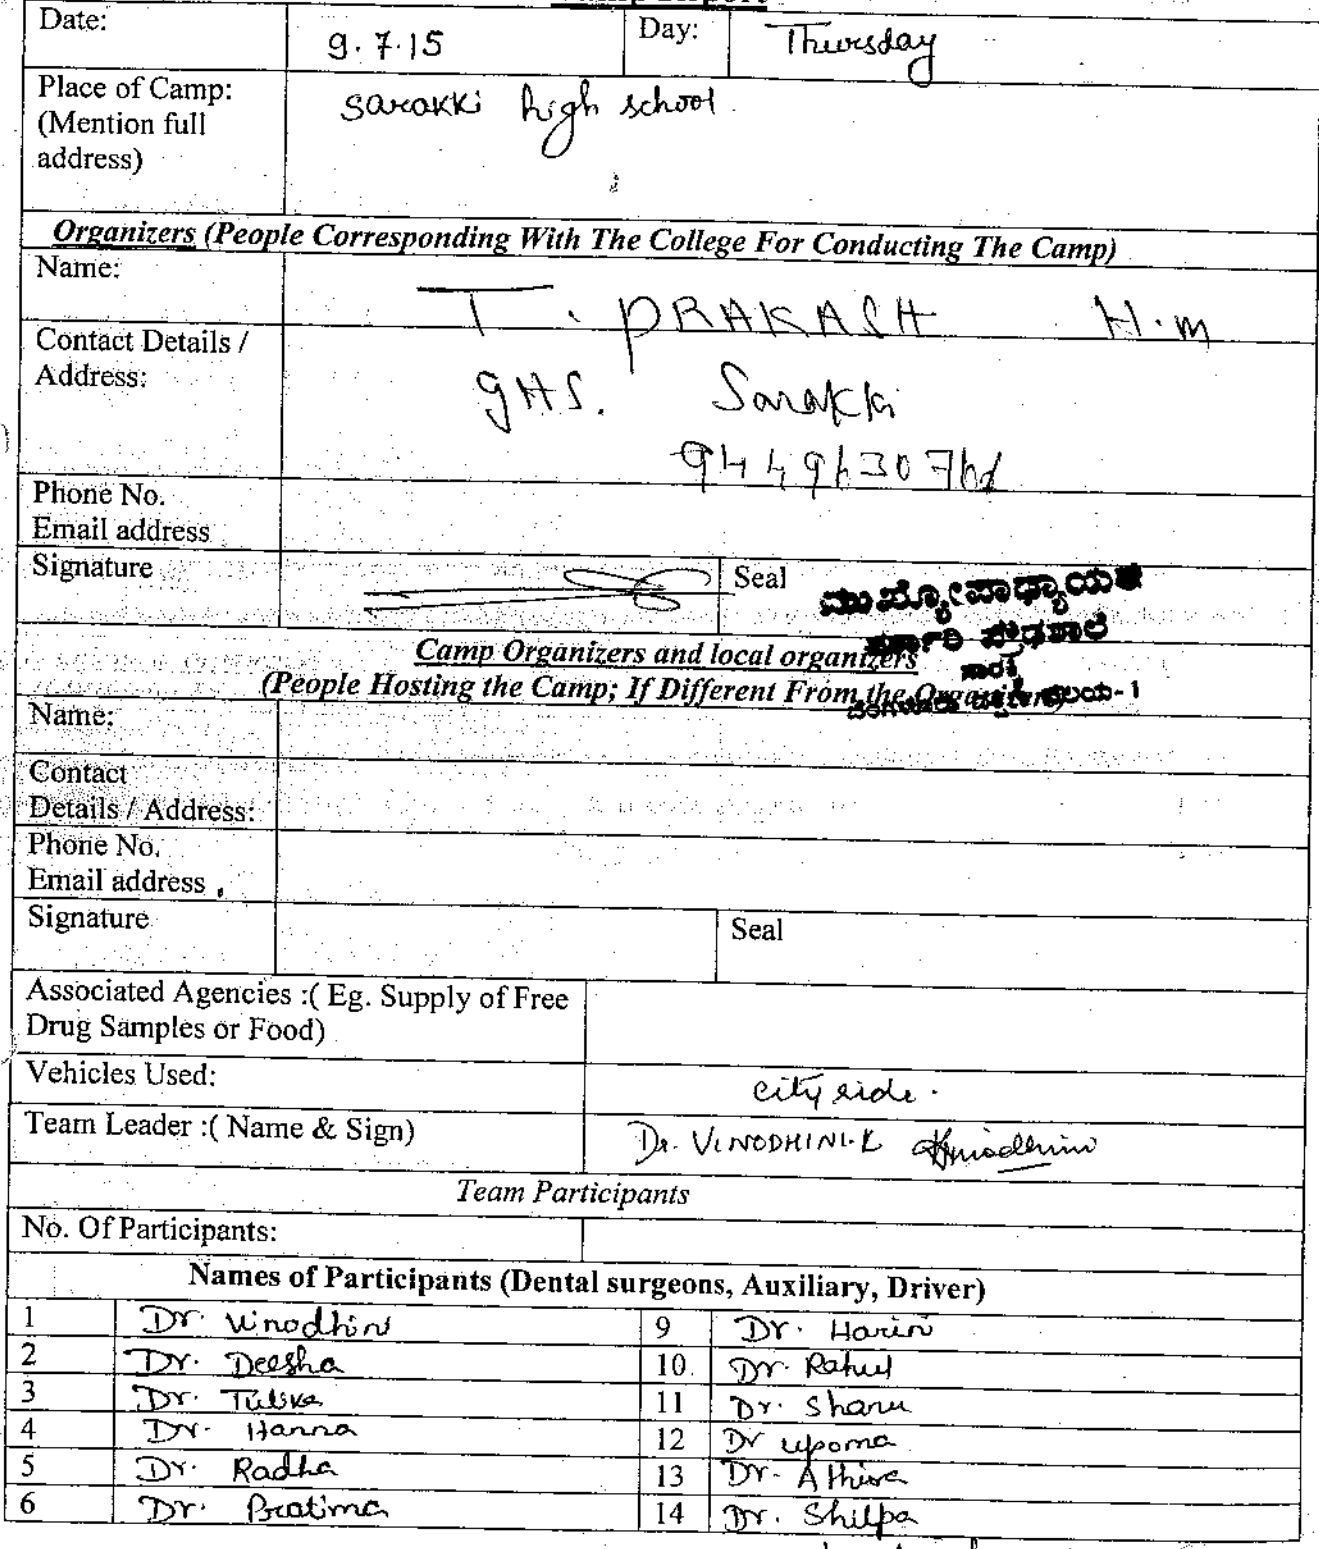 Date: 9.7.15 Day: Thursday
Place of Camp: sarakki high school.
(Mention full
address)
Organizers (People Corresponding With The College For Conducting The Camp)
Name: T. PRAKASH H.M
Contact Details /
Address: GHS. Sarakki
Phone No.
Email address
Signature Seal
ಮುಖ್ಯೋಪಾಧ್ಯಾಯರು
ಸರ್ಕಾರಿ ಪ್ರೌಢಶಾಲೆ
ವಲಯ-1
Camp Organizers and local organizers
(People Hosting the Camp; If Different From the Organizers)
Name:
Contact
Details / Address:
Phone No.
Email address
Signature Seal
Associated Agencies :( Eg. Supply of Free
Drug Samples or Food)
Vehicles Used: city ride.
Team Leader :( Name & Sign) Dr. VINODHINI.K
Team Participants
No. Of Participants:
Names of Participants (Dental surgeons, Auxiliary, Driver)
1 Dr. Vinodhini 9 Dr. Harini
2 Dr. Deesha 10. Dr. Rahul
3 Dr. Tulika 11 Dr. Sharu
4 Dr. Hanna 12 Dr upoma
5 Dr. Radha 13 Dr. Athira
6 Dr. Pratima 14 Dr. Shilpa